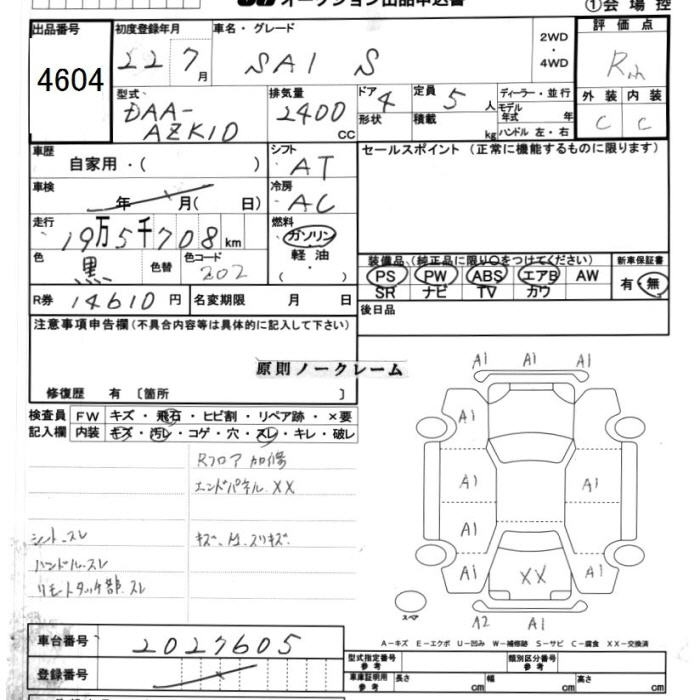 オークション出品申込書
①会場控
出品番号
4604
初度登録年月
22 7月
車名・グレード
SAI S
2WD
・
4WD
評価点
R
型式
DAA-
AZK10
排気量
2400 CC
ドア 4
形状
定員 5 人
積載 kg
ディーラー・並行
モデル年式 年
ハンドル 左・右
外装 内装
C C
車歴
自家用・( )
シフト
AT
セールスポイント (正常に機能するものに限ります)
車検
年 月( 日)
冷房
AC
走行
19万5千708km
燃料
ガソリン
・
軽油
( ・ )
色
黒
色替
色コード
202
装備品(純正品に限り○をつけてください)
PS PW ABS エアB AW
SR ナビ TV カワ
新車保証書
有・無
R券 14610円
名変期限 月 日
後日品
注意事項申告欄(不具合内容等は具体的に記入して下さい)
原則ノークレーム
修復歴 有 〔箇所 〕
検査員
記入欄
FW キズ・飛石・ヒビ割・リペア跡・×要
内装 キズ・汚レ・コゲ・穴・スレ・キレ・破レ
Rフロア加修
エンドパネルXX
シートスレ
キズ、A1、スリキズ
ハンドルスレ
リモートタッチ部スレ
A1 A1 A1
A1
A1 A1
A1
A1 XX A1
スペア
A2 A1
A-キズ E-エクボ U-凹み W-補修跡 S-サビ C-腐食 XX-交換済
車台番号
2027605
登録番号
型式指定番号
参考
類別区分番号
参考
車庫証明用
参考
長さ cm
幅 cm
高さ cm